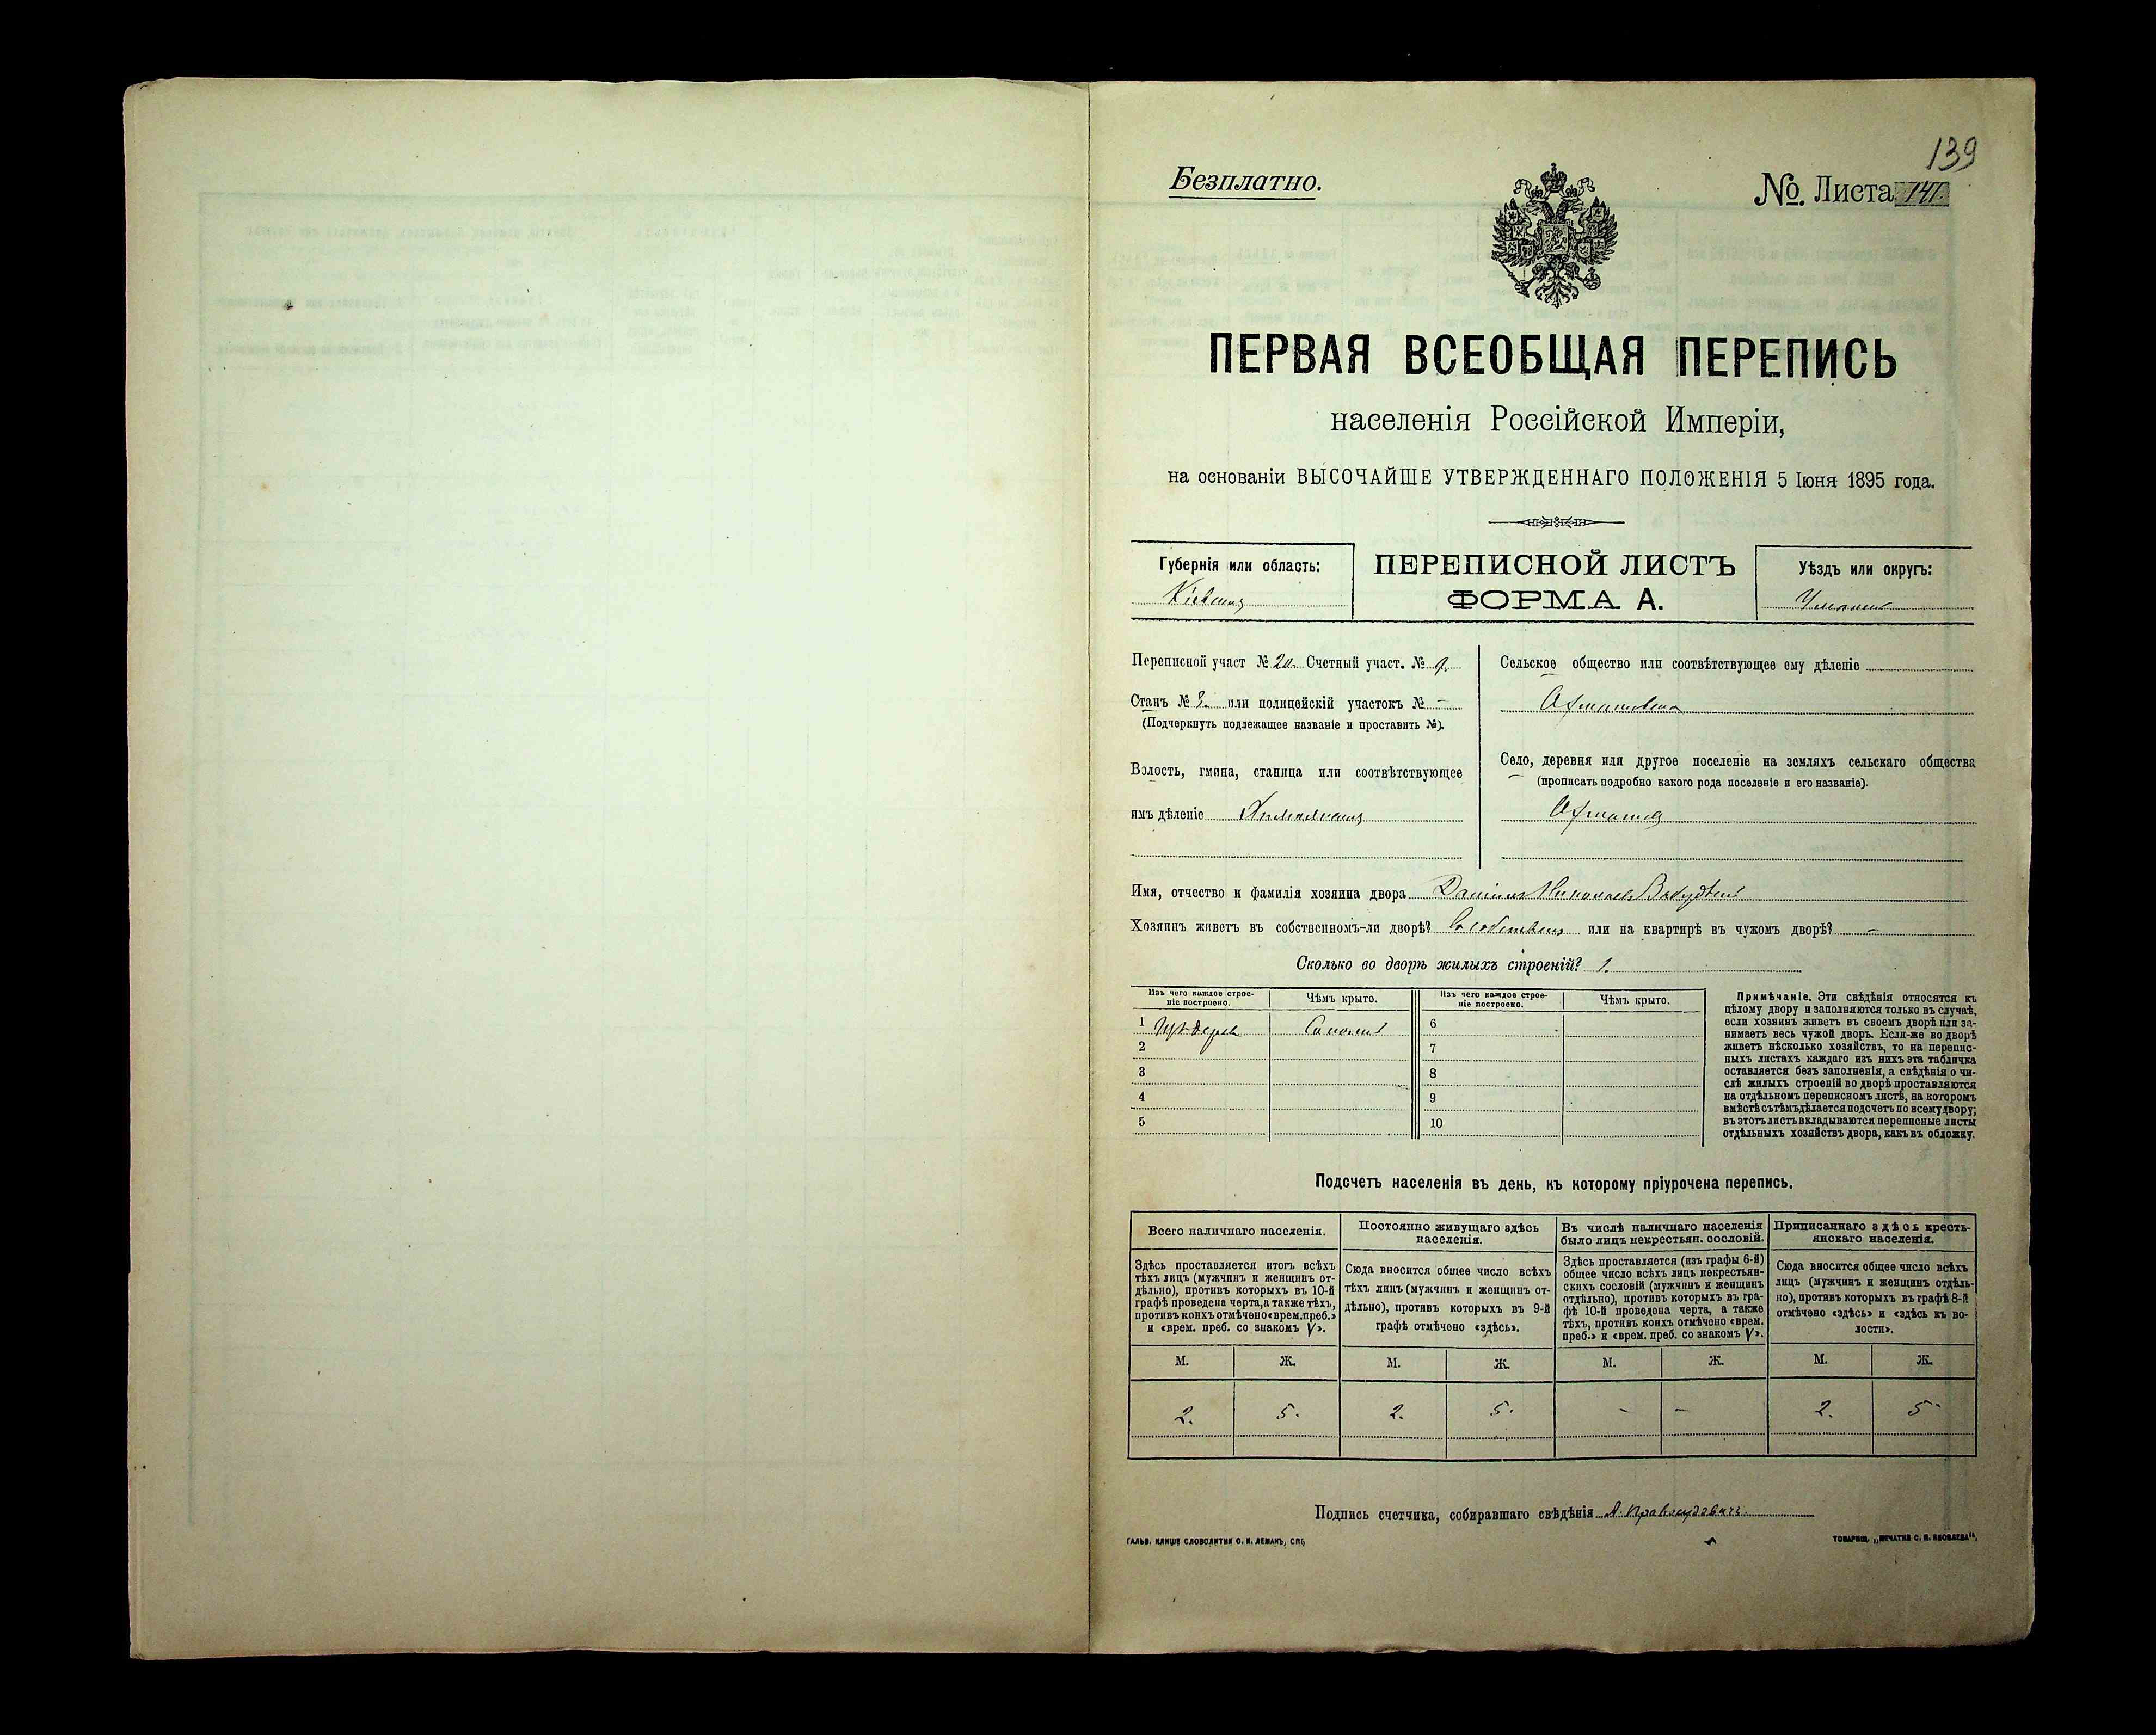 139
Безплатно.
№. Листа 141.
ПЕРВАЯ ВСЕОБЩАЯ ПЕРЕПИСЬ
населенія Россійской Имперіи,
на основаніи ВЫСОЧАЙШЕ УТВЕРЖДЕННАГО ПОЛОЖЕНІЯ 5 Іюня 1895 года.
Губернія или область:
Кіевская
ПЕРЕПИСНОЙ ЛИСТЪ
ФОРМА А.
Уѣздъ или округъ:
Уманскій
Переписной участ № 20. Счетный участ. № 9.
Станъ № 3. или полицейскій участокъ № -
(Подчеркнуть подлежащее названіе и проставить №).
Волость, гмина, станица или соотвѣтствующее
имъ дѣленіе
Сельское общество или соотвѣтствующее ему дѣленіе
Село, деревня или другое поселеніе на земляхъ сельскаго общества
(прописать подробно какого рода поселеніе и его названіе).
Имя, отчество и фамилія хозяина двора
Хозяинъ живетъ въ собственномъ-ли дворѣ? или на квартирѣ въ чужомъ дворѣ? -
Сколько во дворѣ жилыхъ строеній? 1.
Изъ чего каждое строе-
ніе построено.
Чѣмъ крыто.
Изъ чего каждое строе-
ніе построено.
Чѣмъ крыто.
1
2
3
4
5
6
7
8
9
10
Примѣчаніе. Эти свѣдѣнія относятся къ
цѣлому двору и заполняются только въ случаѣ,
если хозяинъ живетъ въ своемъ дворѣ или за-
нимаетъ весь чужой дворъ. Если-же во дворѣ
живетъ нѣсколько хозяйствъ, то на перепис-
ныхъ листахъ каждаго изъ нихъ эта табличка
оставляется безъ заполненія, а свѣдѣнія о чи-
слѣ жилыхъ строеній во дворѣ проставляются
на отдѣльномъ переписномъ листѣ, на которомъ
вмѣстѣ съ тѣмъ дѣлается подсчетъ по всему двору;
въ этотъ листъ вкладываются переписные листы
отдѣльныхъ хозяйствъ двора, какъ въ обложку.
Подсчетъ населенія въ день, къ которому пріурочена перепись.
Всего наличнаго населенія.
Здѣсь проставляется итогъ всѣхъ
тѣхъ лицъ (мужчинъ и женщинъ от-
дѣльно), противъ которыхъ въ 10-й
графѣ проведена черта, а также тѣхъ,
противъ коихъ отмѣчено «врем. преб.»
и «врем. преб. со знакомъ V».
Постоянно живущаго здѣсь
населенія.
Сюда вносится общее число всѣхъ
тѣхъ лицъ (мужчинъ и женщинъ от-
дѣльно), противъ которыхъ въ 9-й
графѣ отмѣчено «здѣсь».
Въ числѣ наличнаго населенія
было лицъ некрестьян. сословій.
Здѣсь проставляется (изъ графы 6-й)
общее число всѣхъ лицъ некрестьян-
скихъ сословій (мужчинъ и женщинъ
отдѣльно), противъ которыхъ въ гра-
фѣ 10-й проведена черта, а также
тѣхъ, противъ коихъ отмѣчено «врем.
преб.» и «врем. преб. со знакомъ V».
Приписаннаго здѣсь кресть-
янскаго населенія.
Сюда вносится общее число всѣхъ
лицъ (мужчинъ и женщинъ отдѣль-
но), противъ которыхъ въ графѣ 8-й
отмѣчено «здѣсь» и «здѣсь къ во-
лости».
М. Ж. М. Ж. М. Ж. М. Ж.
2. 5. 2. 5. - - 2. 5.
Подпись счетчика, собиравшаго свѣдѣнія
ГАЛЬВ. КЛИШЕ СЛОВОЛИТНИ О. И. ЛЕМАНЪ, СПБ,
ТОВАРИЩ. „ПЕЧАТНЯ С. П. ЯКОВЛЕВА“.